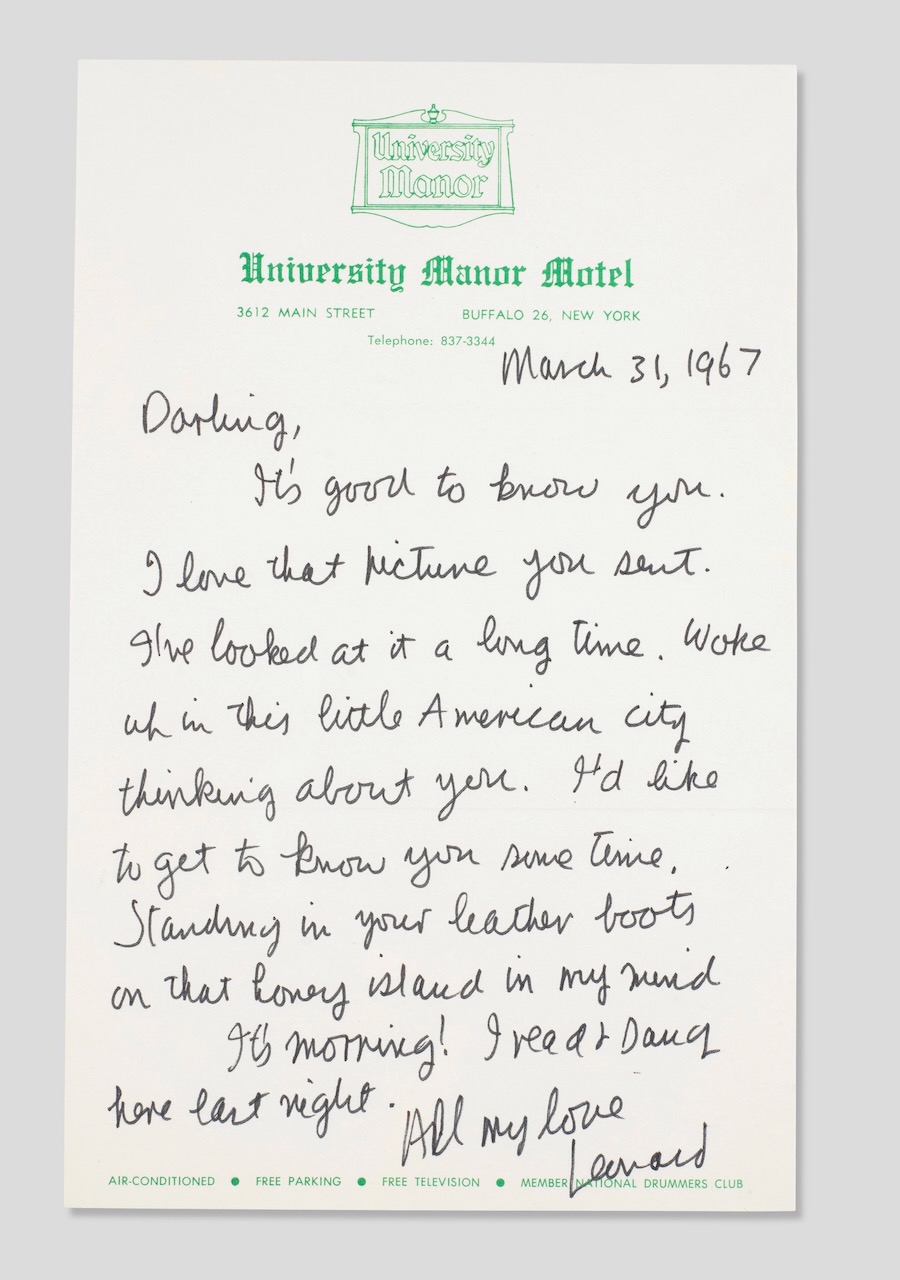 University
Manor
University Manor Motel
3612 MAIN STREET BUFFALO 26, NEW YORK
Telephone: 837-3344
March 31, 1967
Darling,
It's good to know you.
I love that picture you sent.
I've looked at it a long time. Woke
up in this little American city
thinking about you. I'd like
to get to know you some time.
Standing in your leather boots
on that honey island in my mind
It's morning! I read & Sang
here last night.
All my love
Leonard
AIR-CONDITIONED ● FREE PARKING ● FREE TELEVISION ● MEMBER NATIONAL DRUMMERS CLUB